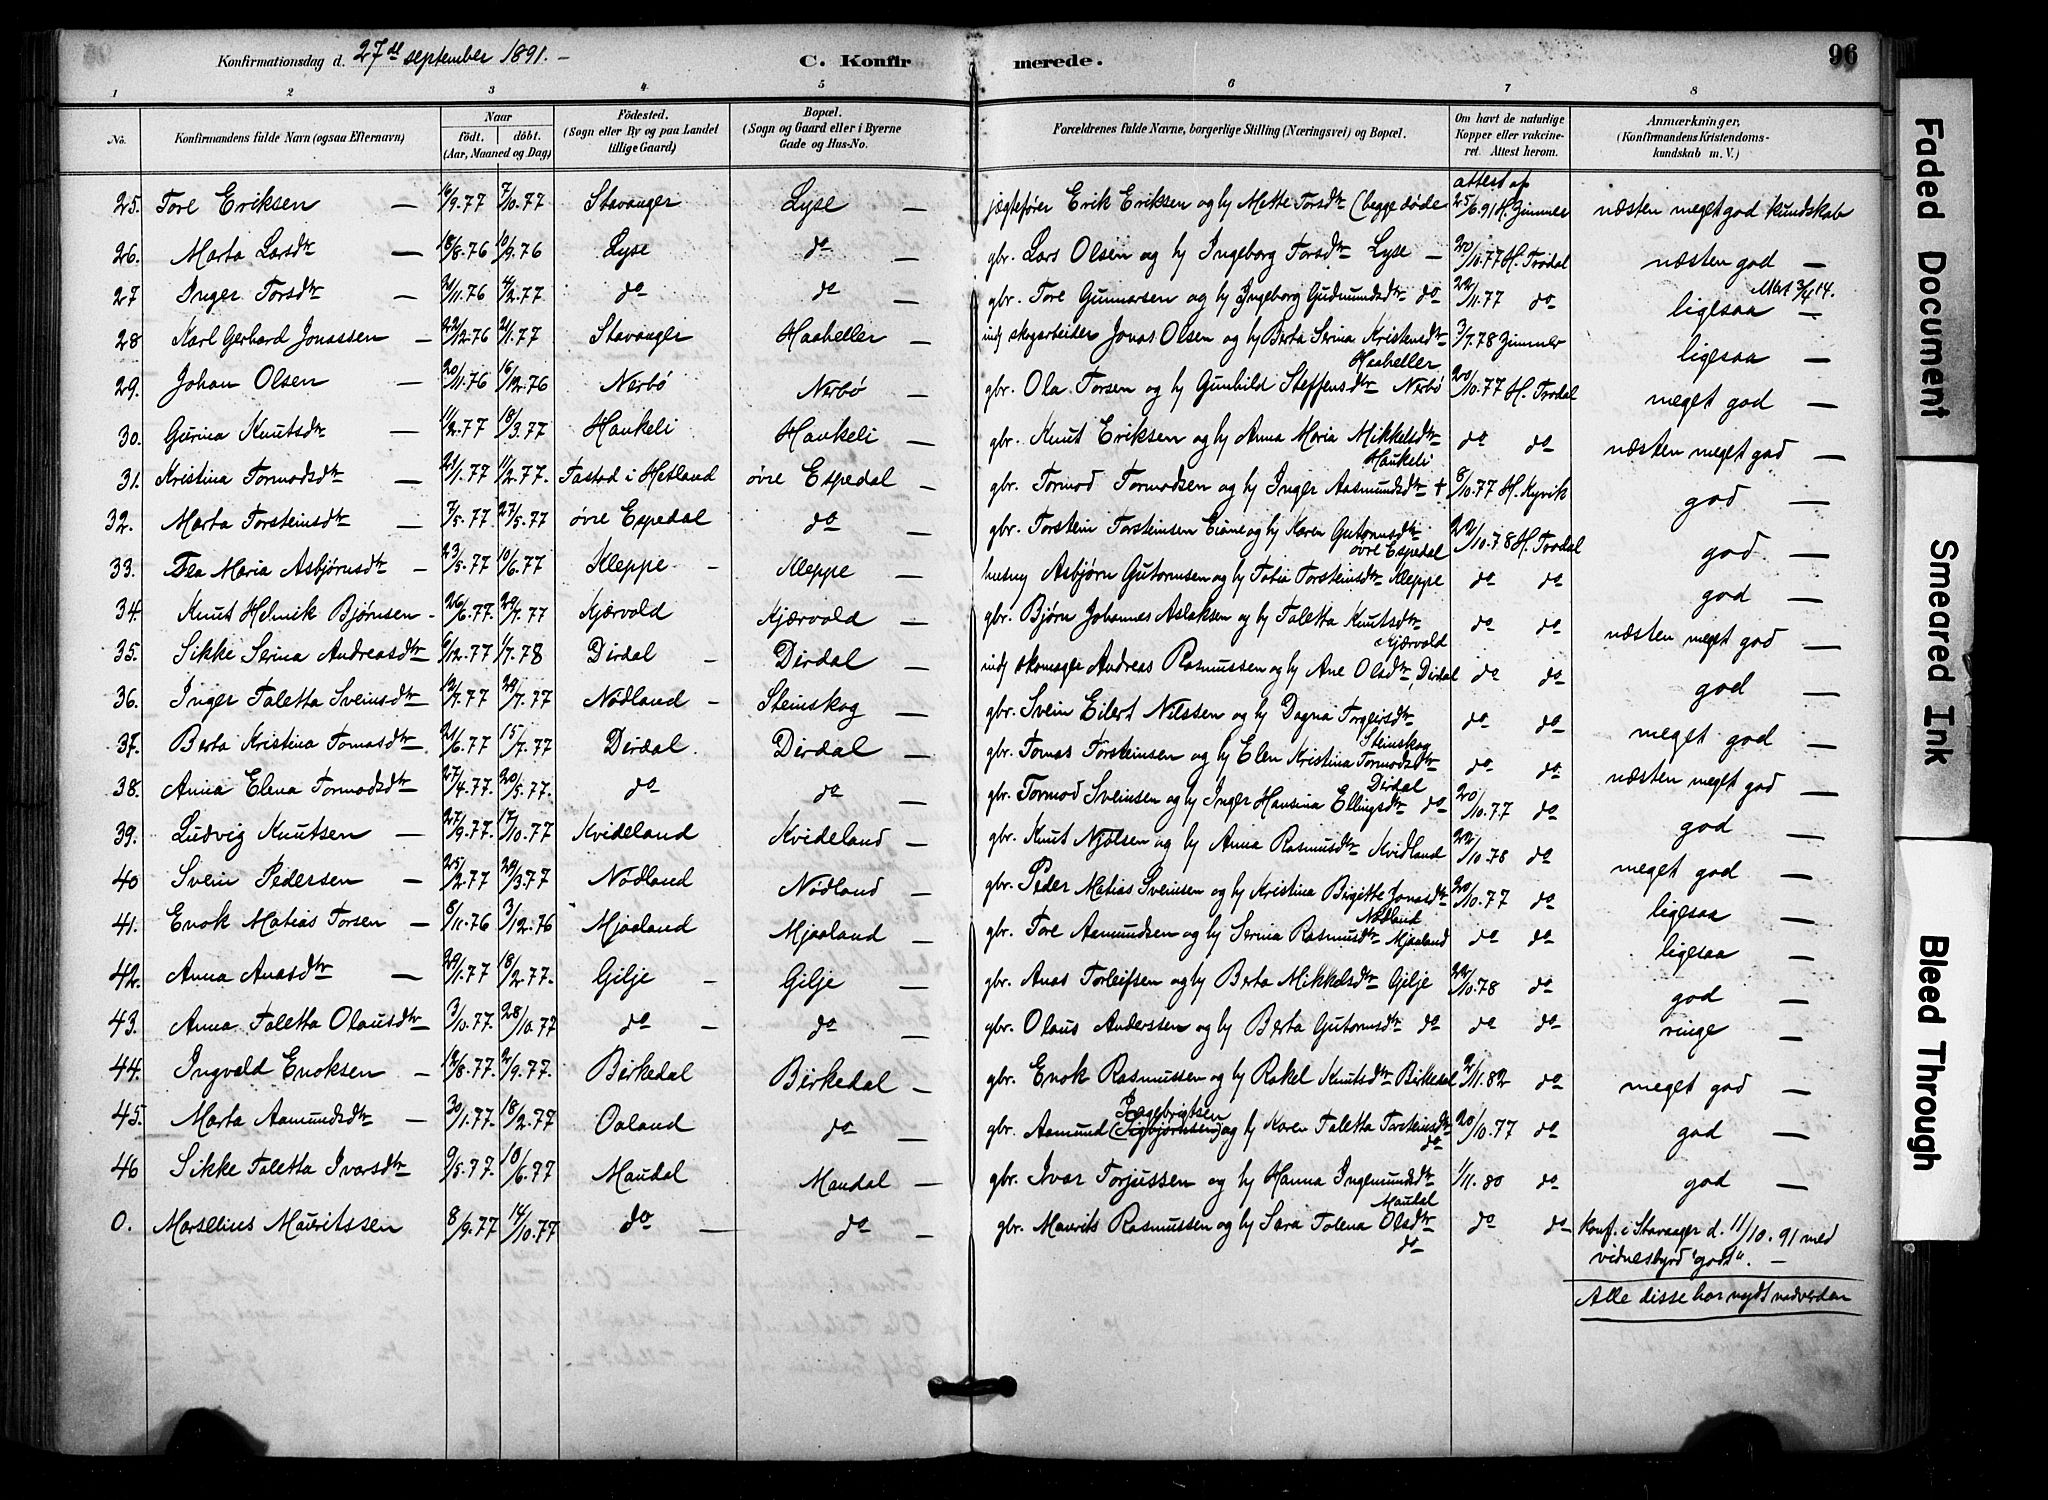 Konfirmationsdag d. 27de september 1891. –
C. Konfirmerede.
96
1 2 3 4 5 6 7 8
No. Konfirmandens fulde Navn (ogsaa Efternavn) Naar födt. döbt. (Aar, Maaned og Dag) Födested. (Sogn eller By og paa Landet tillige Gaard) Bopæl. (Sogn og Gaard eller i Byerne Gade og Hus-No. Forældrenes fulde Navne, borgerlige Stilling (Næringsvei) og Bopæl. Om havt de naturlige Kopper eller vakcineret. Attest herom. Anmærkninger, (Konfirmandens Kristendomskundskab m. V.)
25. Tore Eriksen — 16/9.77 7/10.77 Stavanger Lyse — jægtefører Erik Eriksen og hj Mette Torsdtr (begge døde attest af 25/6.91 H. Zimmer næsten meget god kundskab
26. Marta Larsdtr — 18/8.76 10/9.76 Lyse do — gbr. Lars Olsen og hj Ingeborg Torsdtr Lyse — 20/10.77 H. Trodal næsten god —
27 Inger Torsdtr — /11.76 4/2.77 do do — gbr. Tore Gunnarsen og hj Ingeborg Gudmundsdtr do 22/11.77 do ligesaa —
28 Karl Gerhard Jonassen — 22/12.76 21/1.77 Stavanger Haaheller — indj skogarbeider Jonas Olsen og hj Berta Serina Kristensdtr Haaheller 3/7.78 Zimmer ligesaa —
29. Johan Olsen — 20/11.76 16/12.76 Nerbø Nerbø — gbr. Ola Torsen og hj Gunhild Steffensdtr Nerbø 20/10.77 H. Trodal meget god —
30. Gurina Knutsdtr — 11/2.77 18/3.77 Haukeli Haukeli — gbr. Knut Eriksen og hj Anna Maria Mikkelsdtr Haukeli do do næsten meget god —
31. Kristina Tormodsdtr — 21/1.77 11/2.77. Tastad i Hetland øvre Espedal — gbr. Tormod Tormodsen og hj Inger Aasmundsdtr + 8/10.77 H. Kyvik god —
32. Marta Torsteinsdtr — 7/5.77 27/5.77 øvre Espedal do — gbr. Torstein Torsteinsen Eiane og hj Karen Gutormsdtr øvre Espedal 22/10.78 H. Trodal god —
33. Maria Asbjørnsdtr — 23/5.77 10/6.77 Kleppe — Kleppe — husmg Asbjørn Gutormsen og hj Tobia Torsteinsdtr Kleppe do do god —
34. Knut Helmik Bjørnsen — 26/6.77. 29/7.77 Kjærvold Kjærvold — gbr. Bjørn Johannes Aslaksen og hj Taletta Knutsdtr Kjærvold do do næsten meget god —
35. Sikke Serina Andreasdtr 6/12.77 1/7.78 Dirdal — Dirdal — indj skomager Andreas Rasmussen og hj Ane Olsdtr, Dirdal do do god —
36. Inger Taletta Sveinsdtr 12/7.77 29/7.77 Nödland — Steinskog — gbr. Svein Eilert Nilssen og hj Dagna Torgeirsdtr Steinskog do do meget god —
37. Berta Kristina Tomasdtr. 21/6.77 15/7.77 Dirdal. Dirdal — gbr. Tomas Torsteinsen og hj Elen Kristina Tormodsdtr Dirdal do do næsten meget god —
38. Anna Elena Tormodsdtr 27/4.77. 20/5.77. do do — gbr. Tormod Sveinsen og hj Inger Hansina Ellingsdtr do 20/10.77 do god —
39. Ludvig Knutsen — 27/9.77. 17/10.77 Kvideland Kvideland — gbr. Knut Njølsen og hj Anna Rasmusdtr Kvidland 22/10.78 do meget god —
40 Svein Pedersen — 25/2.77 29/3.77 Nödland Nödland — gbr. Peder Matias Sveinsen og hj Kristina Birgitte Jonasdtr Nödland 20/10.77 do ligesaa —
41. Enok Matias Torsen — 8/11.76 3/12.76 Mjaaland Mjaaland — gbr. Tore Aamundsen og hj Serina Rasmusdtr Mjaaland do do ligesaa —
42. Anna Anasdtr — 29/1.77 18/2.77. Gilje — Gilje — gbr. Anas Torleifsen og hj Berta Mikkelsdtr Gilje 22/10.78 do god —
43. Anna Taletta Olausdtr 3/10.77. 28/10.77 do — do — gbr. Olaus Anderssen og hj Berta Gutormsdtr do do do ringe —
44. Ingvald Enoksen — 12/8.77. 2/9.77. Birkedal Birkedal — gbr. Enok Rasmussen og hj Rakel Knutsdtr Birkedal 2/11.82 do meget god —
45. Marta Aamundsdtr — 30/1.77. 18/2.77 Oaland do — gbr. Aamund Ingebrigtsen (Sigbjørnsen) og hj Karen Taletta Torsteinsdtr do 20/10.77 do god —
46 Sikke Taletta Ivarsdtr 9/5.77. 10/6.77 Maudal Maudal — gbr. Ivar Torjussen og hj Hanna Ingemundsdtr Maudal 1/11.80 do god —
0. Marselius Mauritssen 8/9.77 14/10.77 do — do — gbr. Maurits Rasmussen og hj Sara Tolena Olsdtr do do do konf. i Stavanger d. 11/10.91 med
vidnesbyrd "godt". —
Alle disse har nydt nadverden
Faded Document
Smeared Ink
Bleed Through